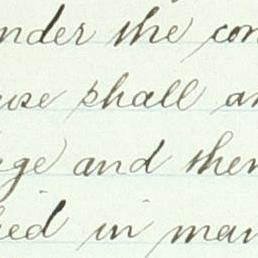 nder the con
use shall an
ge and then
ed in man